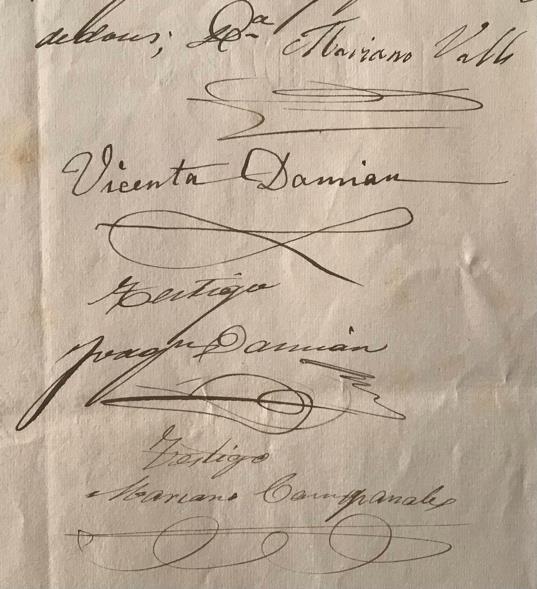 de dous; Dª Mariano Valls
Vicenta Damian
Testigo
Joaqⁿ Damián
Testigo
Mariano Campanales